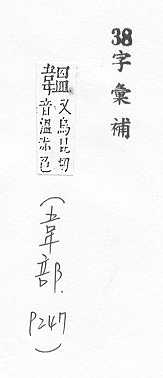 38字彙補
韞又烏昆切
音溫赤色
(韋部.P247)